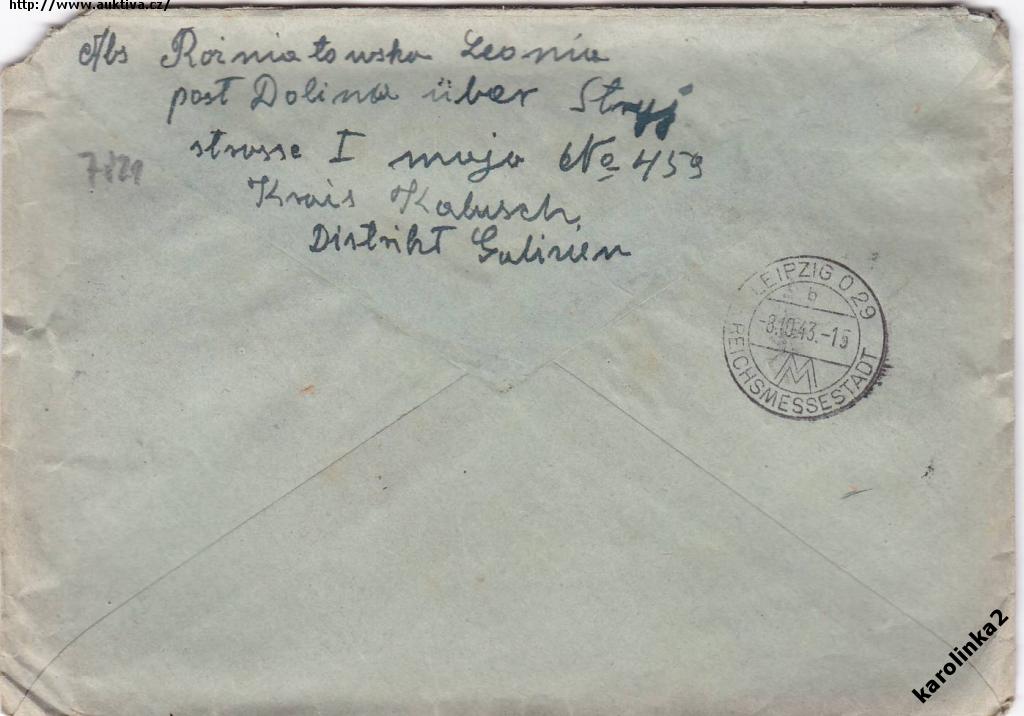 http://www.auktiva.cz/
Abs Rozniatowska Leonia
post Dolina über Stryj
strasse I maja No 459
Krais Kalusch
Distrikt Galizien
7821
LEIPZIG O 29
b
-8.10.43.-15
M
REICHSMESSESTADT
karolinka2